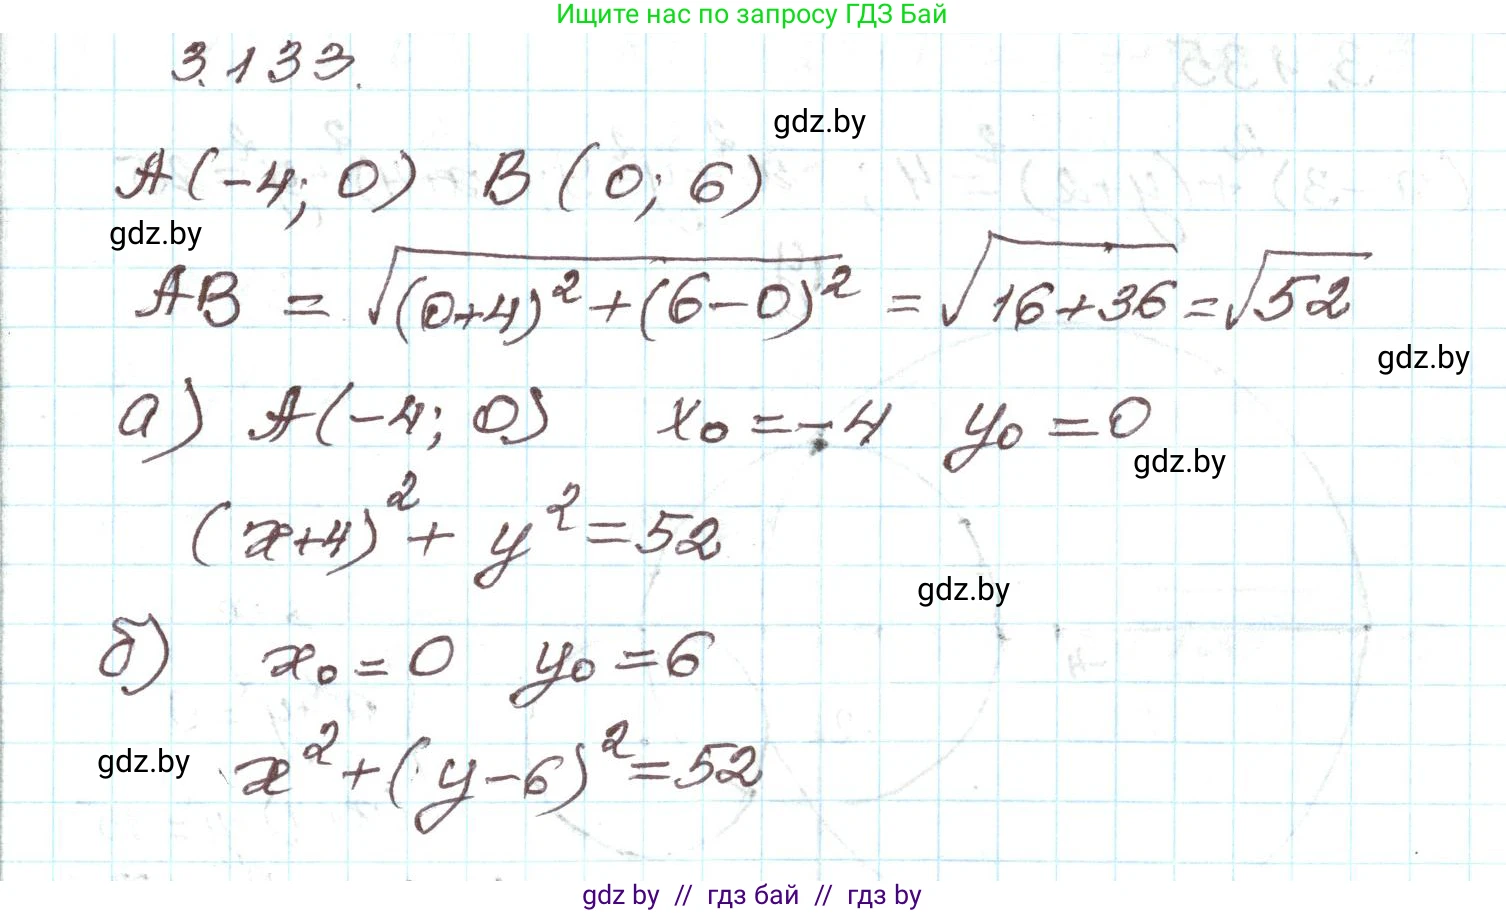 Ищите нас по запросу ГДЗ Бай
3.133.
gdz.by
A(-4; 0) B(0; 6)
gdz.by
AB = √((0+4)² + (6-0)²) = √(16+36) = √52
gdz.by
а) A(-4; 0) x₀ = -4 y₀ = 0
gdz.by
(x+4)² + y² = 52
gdz.by
б) x₀ = 0 y₀ = 6
gdz.by
x² + (y-6)² = 52
gdz by // гдз бай // гдз by